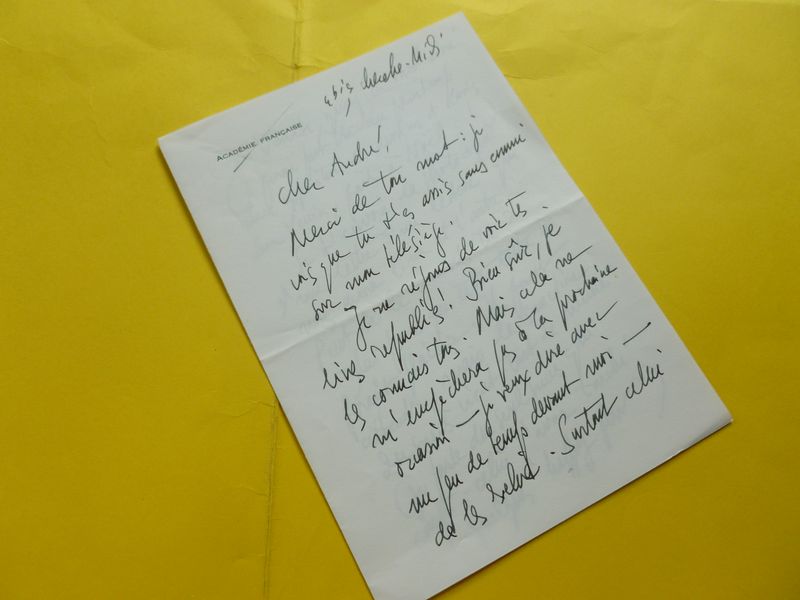 ACADÉMIE FRANÇAISE
4 bis Cherche-Midi
Cher André,
Merci de ton mot : je
vois que tu t'es assis sans ennui
sur mon télésiège.
Je me réjouis de voir tes
livres republiés ! Bien sûr, je
les connais tous. Mais cela ne
m'empêchera pas à la prochaine
occasion — je veux dire avec
un peu de temps devant moi —
de les relire. Surtout celui